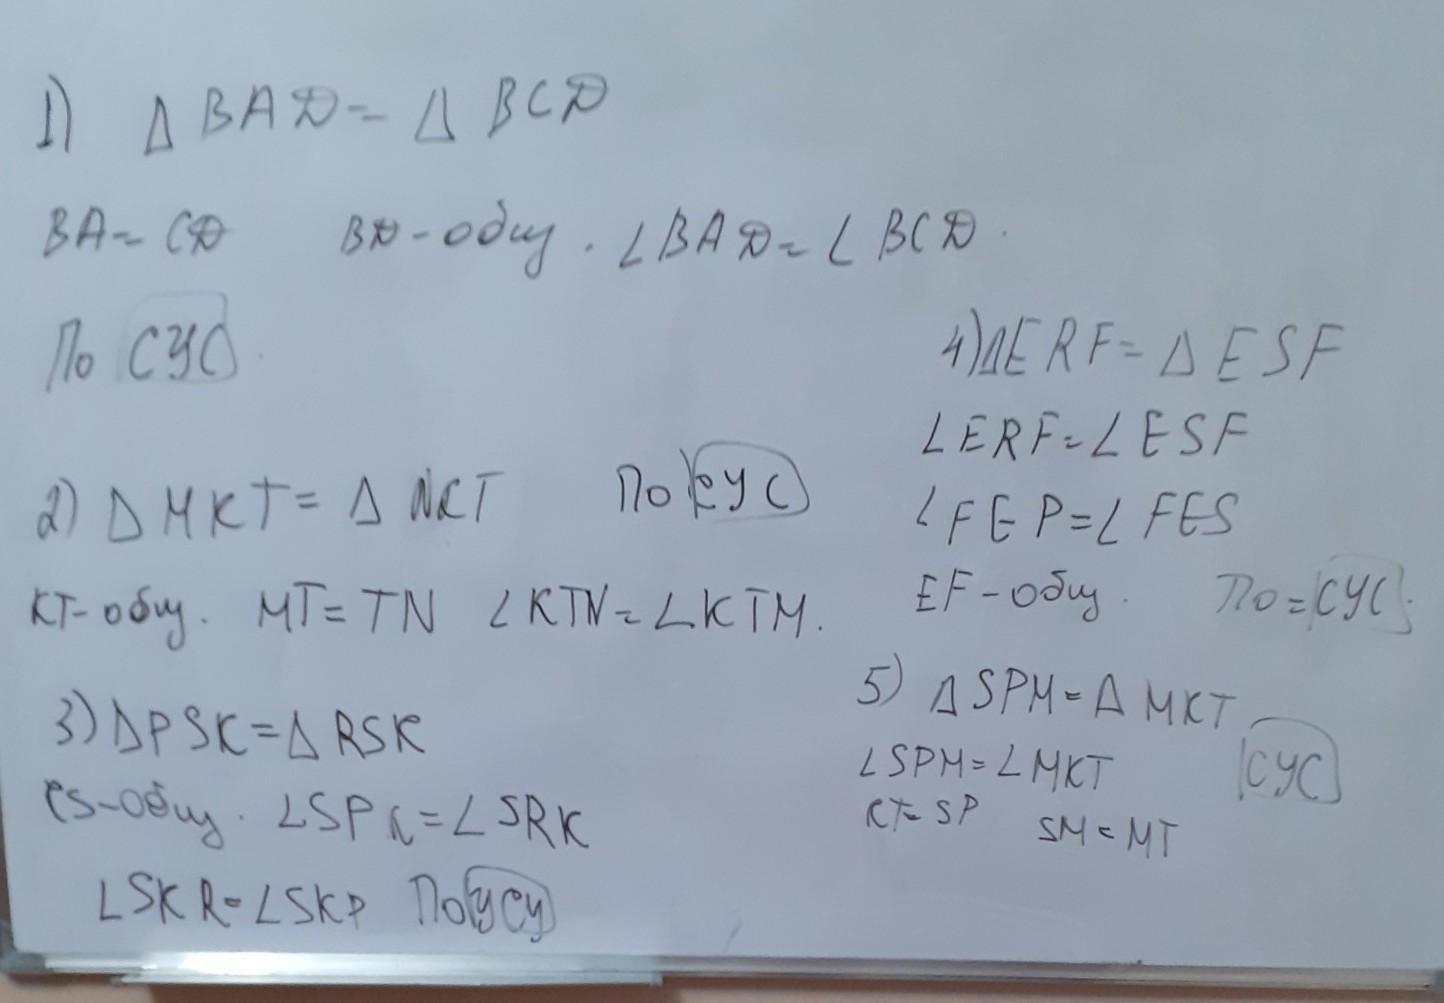 1) Δ BAD = Δ BCD
BA = CD BD - общ. ∠BAD = ∠BCD.
По СУС.
2) Δ MKT = Δ NKT По СУС
KT - общ. MT = TN ∠KTN = ∠KTM.
3) ΔPSK = ΔRSK
KS - общ. ∠SPK = ∠SRK
∠SKR = ∠SKP По УСУ
4) ΔERF = ΔESF
∠ERF = ∠ESF
∠FEP = ∠FES
EF - общ. По = СУС.
5) ΔSPM = ΔMKT
∠SPM = ∠MKT СУС
KT = SP SM = MT